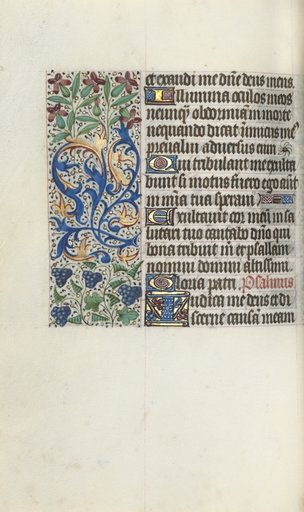 et exaudi me dñe deus meus.
Illumina oculos meos
neunq̃ obdormiã in morte
nequando dicat inimicus me9
preualui aduersus eum
Qui tribulant me exulta
bunt si motus fuero ego aut̃
in mĩa tua speraui
Exultauit cor meũ in sa
lutari tuo cantabo dño qui
bona tribuit m̃ et psallam
nomini domini altissimi.
Gloria patri. Psalmus
Iudica me deus et di
scerne causã meam